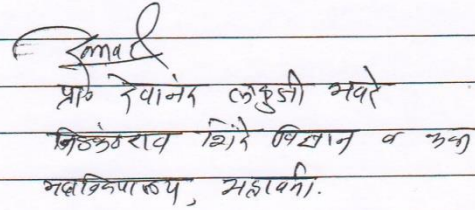 प्रा० देवानंद लकुजी भवरे
निळकंठराव शिंदे विज्ञान व कला
महाविद्यालय, भद्रावती.